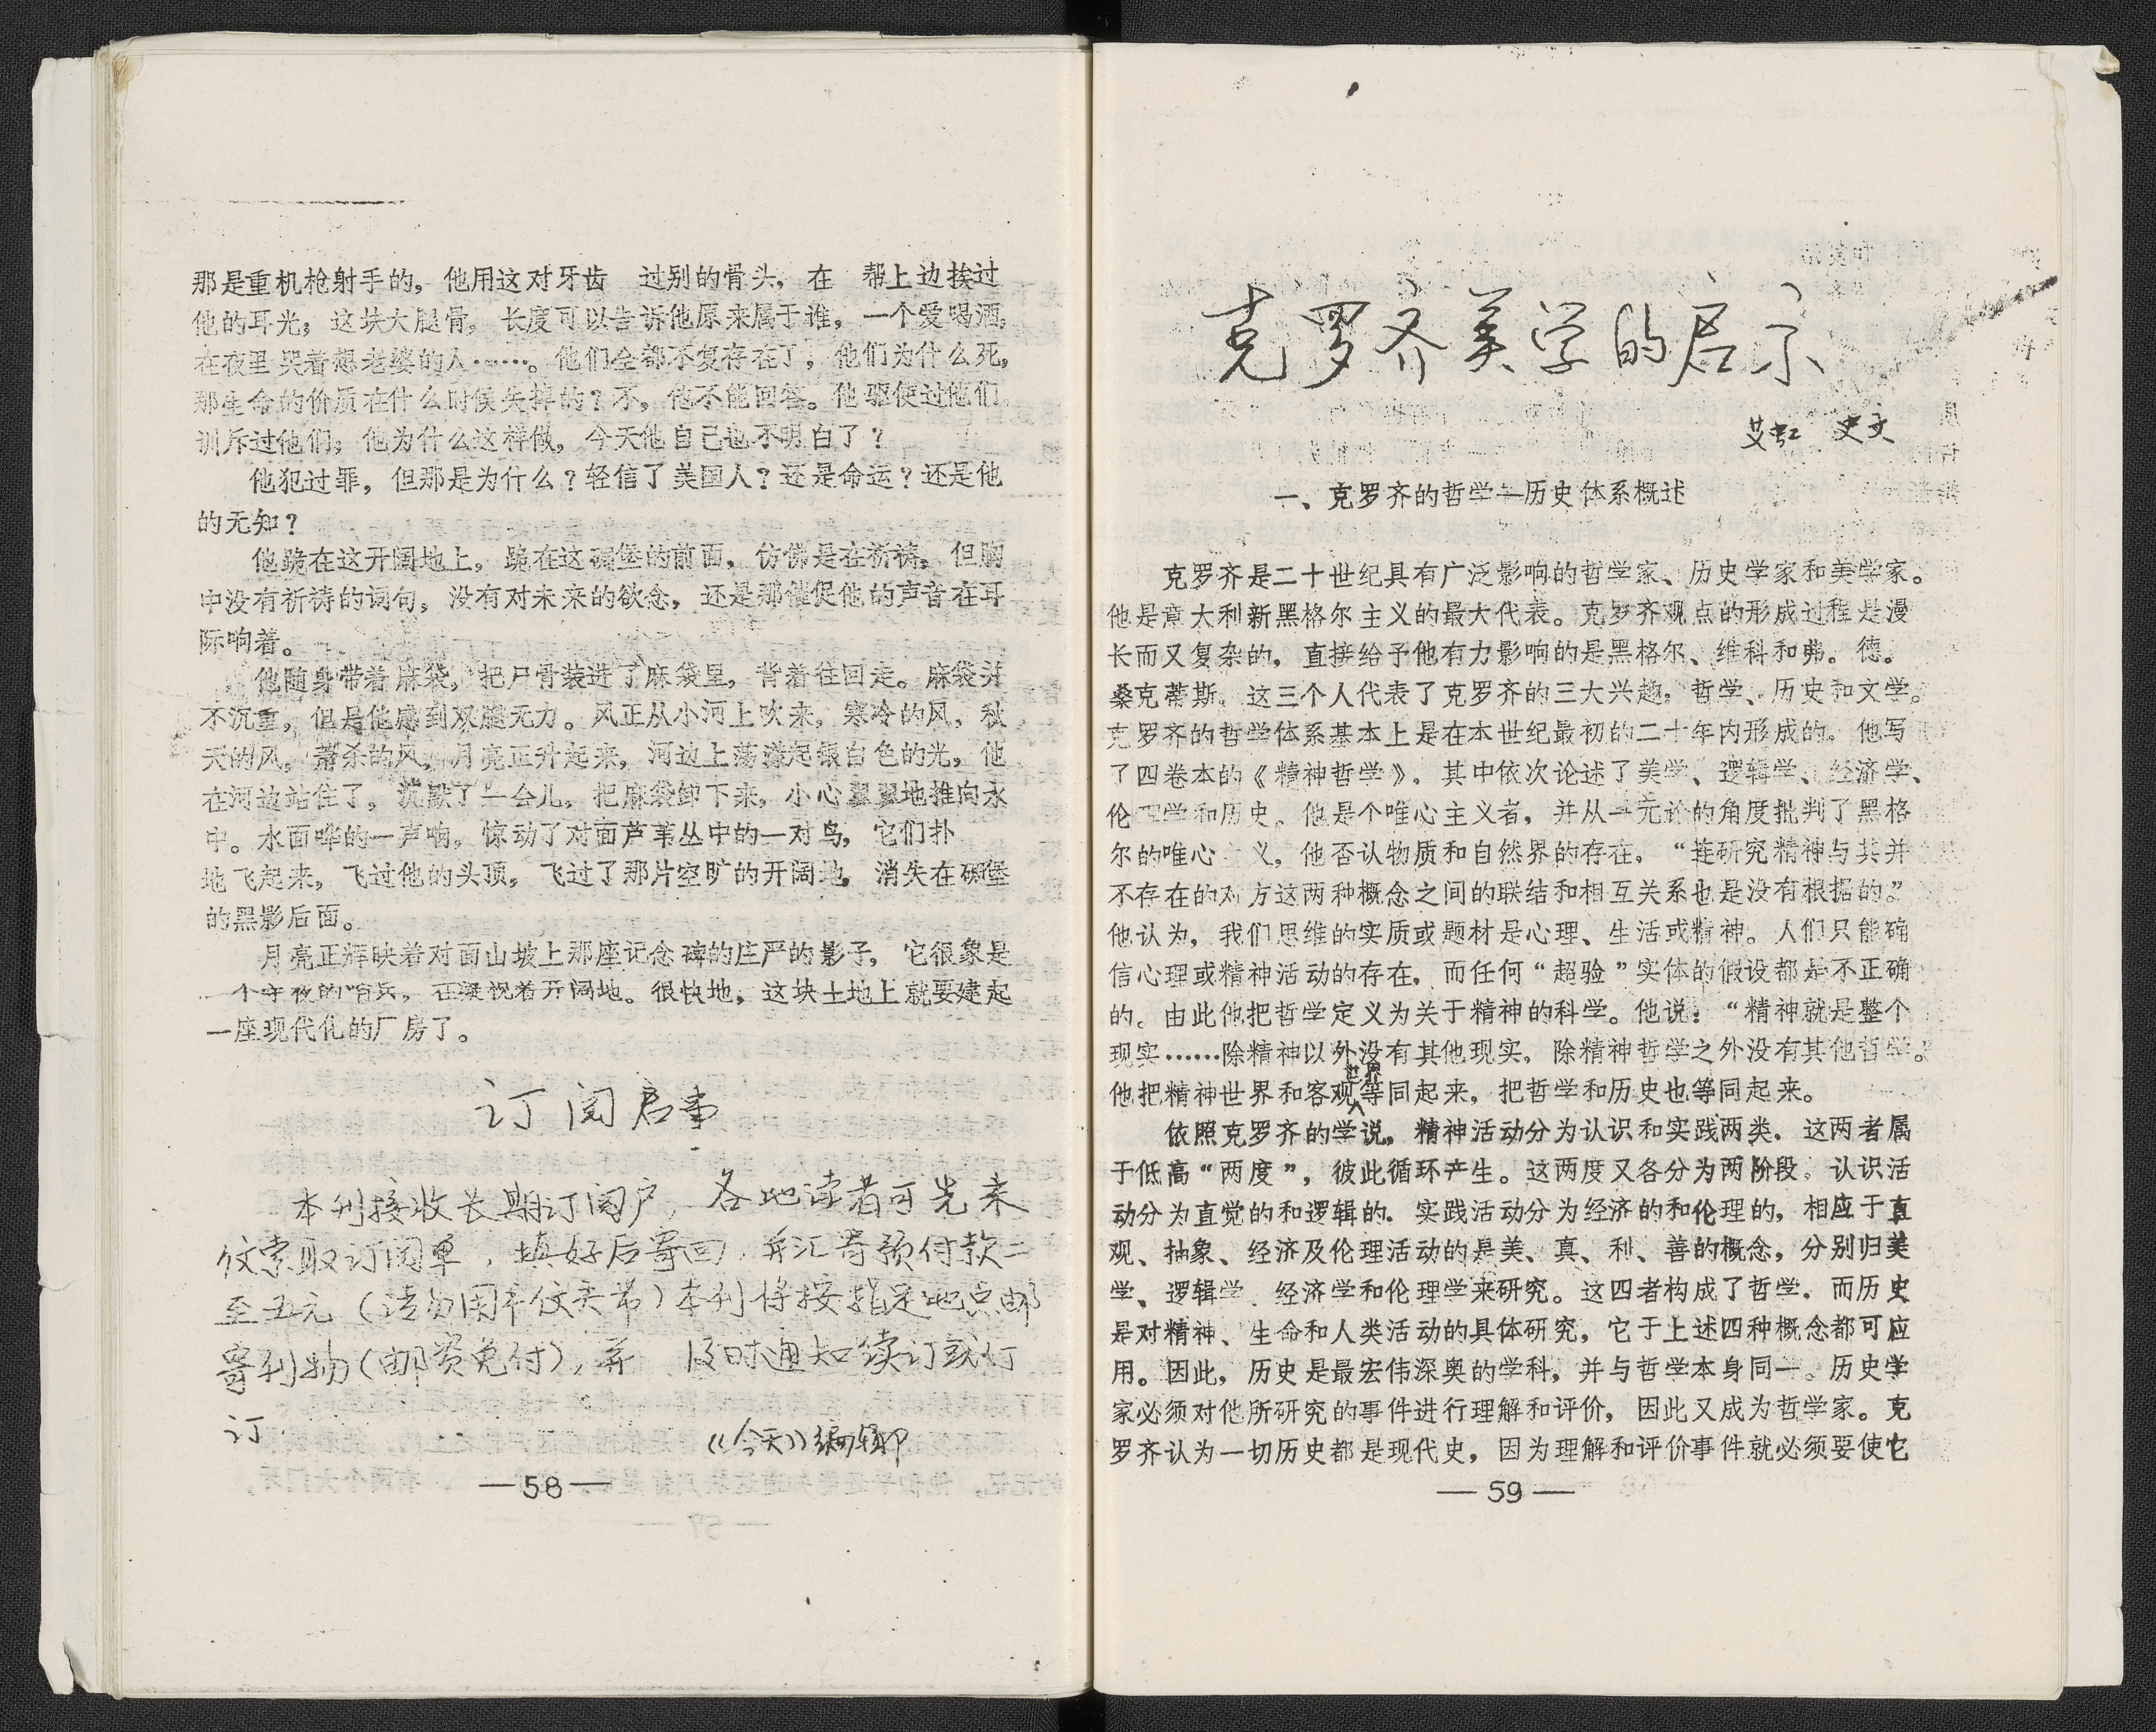 那是重机枪射手的，他用这对牙齿　过别的骨头，在　帮上边挨过
他的耳光；这块大腿骨，长度可以告诉他原来属于谁，一个爱喝酒，
在夜里哭着想老婆的人……。他们全都不复存在了，他们为什么死，
那生命的价质在什么时候失掉的？不，他不能回答。他驱使过他们
训斥过他们；他为什么这样做，今天他自己也不明白了？
他犯过罪，但那是为什么？轻信了美国人？还是命运？还是他
的无知？
他跪在这开阔地上，跪在这碉堡的前面，仿佛是在祈祷，但胸
中没有祈祷的词句，没有对未来的欲念，还是那催促他的声音在耳
际响着。
他随身带着麻袋，把尸骨装进了麻袋里，背着往回走。麻袋并
不沉重，但是他感到双腿无力。风正从小河上吹来，寒冷的风，秋
天的风，萧杀的风，月亮正升起来，河边上荡漾起银白色的光，他
在河边站住了，沉默了一会儿，把麻袋卸下来，小心翼翼地推向水
中。水面哗的一声响，惊动了对面芦苇丛中的一对鸟，它们扑
地飞起来，飞过他的头顶，飞过了那片空旷的开阔地，消失在碉堡
的黑影后面。
月亮正辉映着对面山坡上那座记念碑的庄严的影子，它很象是
一个守夜的哨兵，在凝视着开阔地。很快地，这块土地上就要建起
一座现代化的厂房了。
订阅启事
本刊接收长期订阅户，各地读者可先来
信索取订阅单，填好后寄回，并汇寄预付款二
至五元（请勿用平信夹带）本刊将按指定地点邮
寄刊物（邮资免付），并　及时通知续订或付
订.
《今天》编辑部
—58—
克罗齐美学的启示
艾虹　史文
一、克罗齐的哲学—历史体系概述
克罗齐是二十世纪具有广泛影响的哲学家、历史学家和美学家。
他是意大利新黑格尔主义的最大代表。克罗齐观点的形成过程是漫
长而又复杂的，直接给予他有力影响的是黑格尔、维科和弗。德。
桑克蒂斯。这三个人代表了克罗齐的三大兴趣：哲学、历史和文学。
克罗齐的哲学体系基本上是在本世纪最初的二十年内形成的。他写
了四卷本的《精神哲学》，其中依次论述了美学、逻辑学、经济学、
伦理学和历史。他是个唯心主义者，并从一元论的角度批判了黑格
尔的唯心　义，他否认物质和自然界的存在，“连研究精神与其并
不存在的对方这两种概念之间的联结和相互关系也是没有根据的。”
他认为，我们思维的实质或题材是心理、生活或精神。人们只能确
信心理或精神活动的存在，而任何“超验”实体的假设都是不正确
的。由此他把哲学定义为关于精神的科学。他说：“精神就是整个
现实……除精神以外没有其他现实，除精神哲学之外没有其他哲学。
他把精神世界和客观世界等同起来，把哲学和历史也等同起来。
依照克罗齐的学说，精神活动分为认识和实践两类．这两者属
于低高“两度”，彼此循环产生。这两度又各分为两阶段。认识活
动分为直觉的和逻辑的．实践活动分为经济的和伦理的，相应于直
观、抽象、经济及伦理活动的是美、真、利、善的概念，分别归美
学、逻辑学、经济学和伦理学来研究。这四者构成了哲学．而历史
是对精神、生命和人类活动的具体研究，它于上述四种概念都可应
用。因此，历史是最宏伟深奥的学科，并与哲学本身同一。历史学
家必须对他所研究的事件进行理解和评价，因此又成为哲学家。克
罗齐认为一切历史都是现代史，因为理解和评价事件就必须要使它
—59—